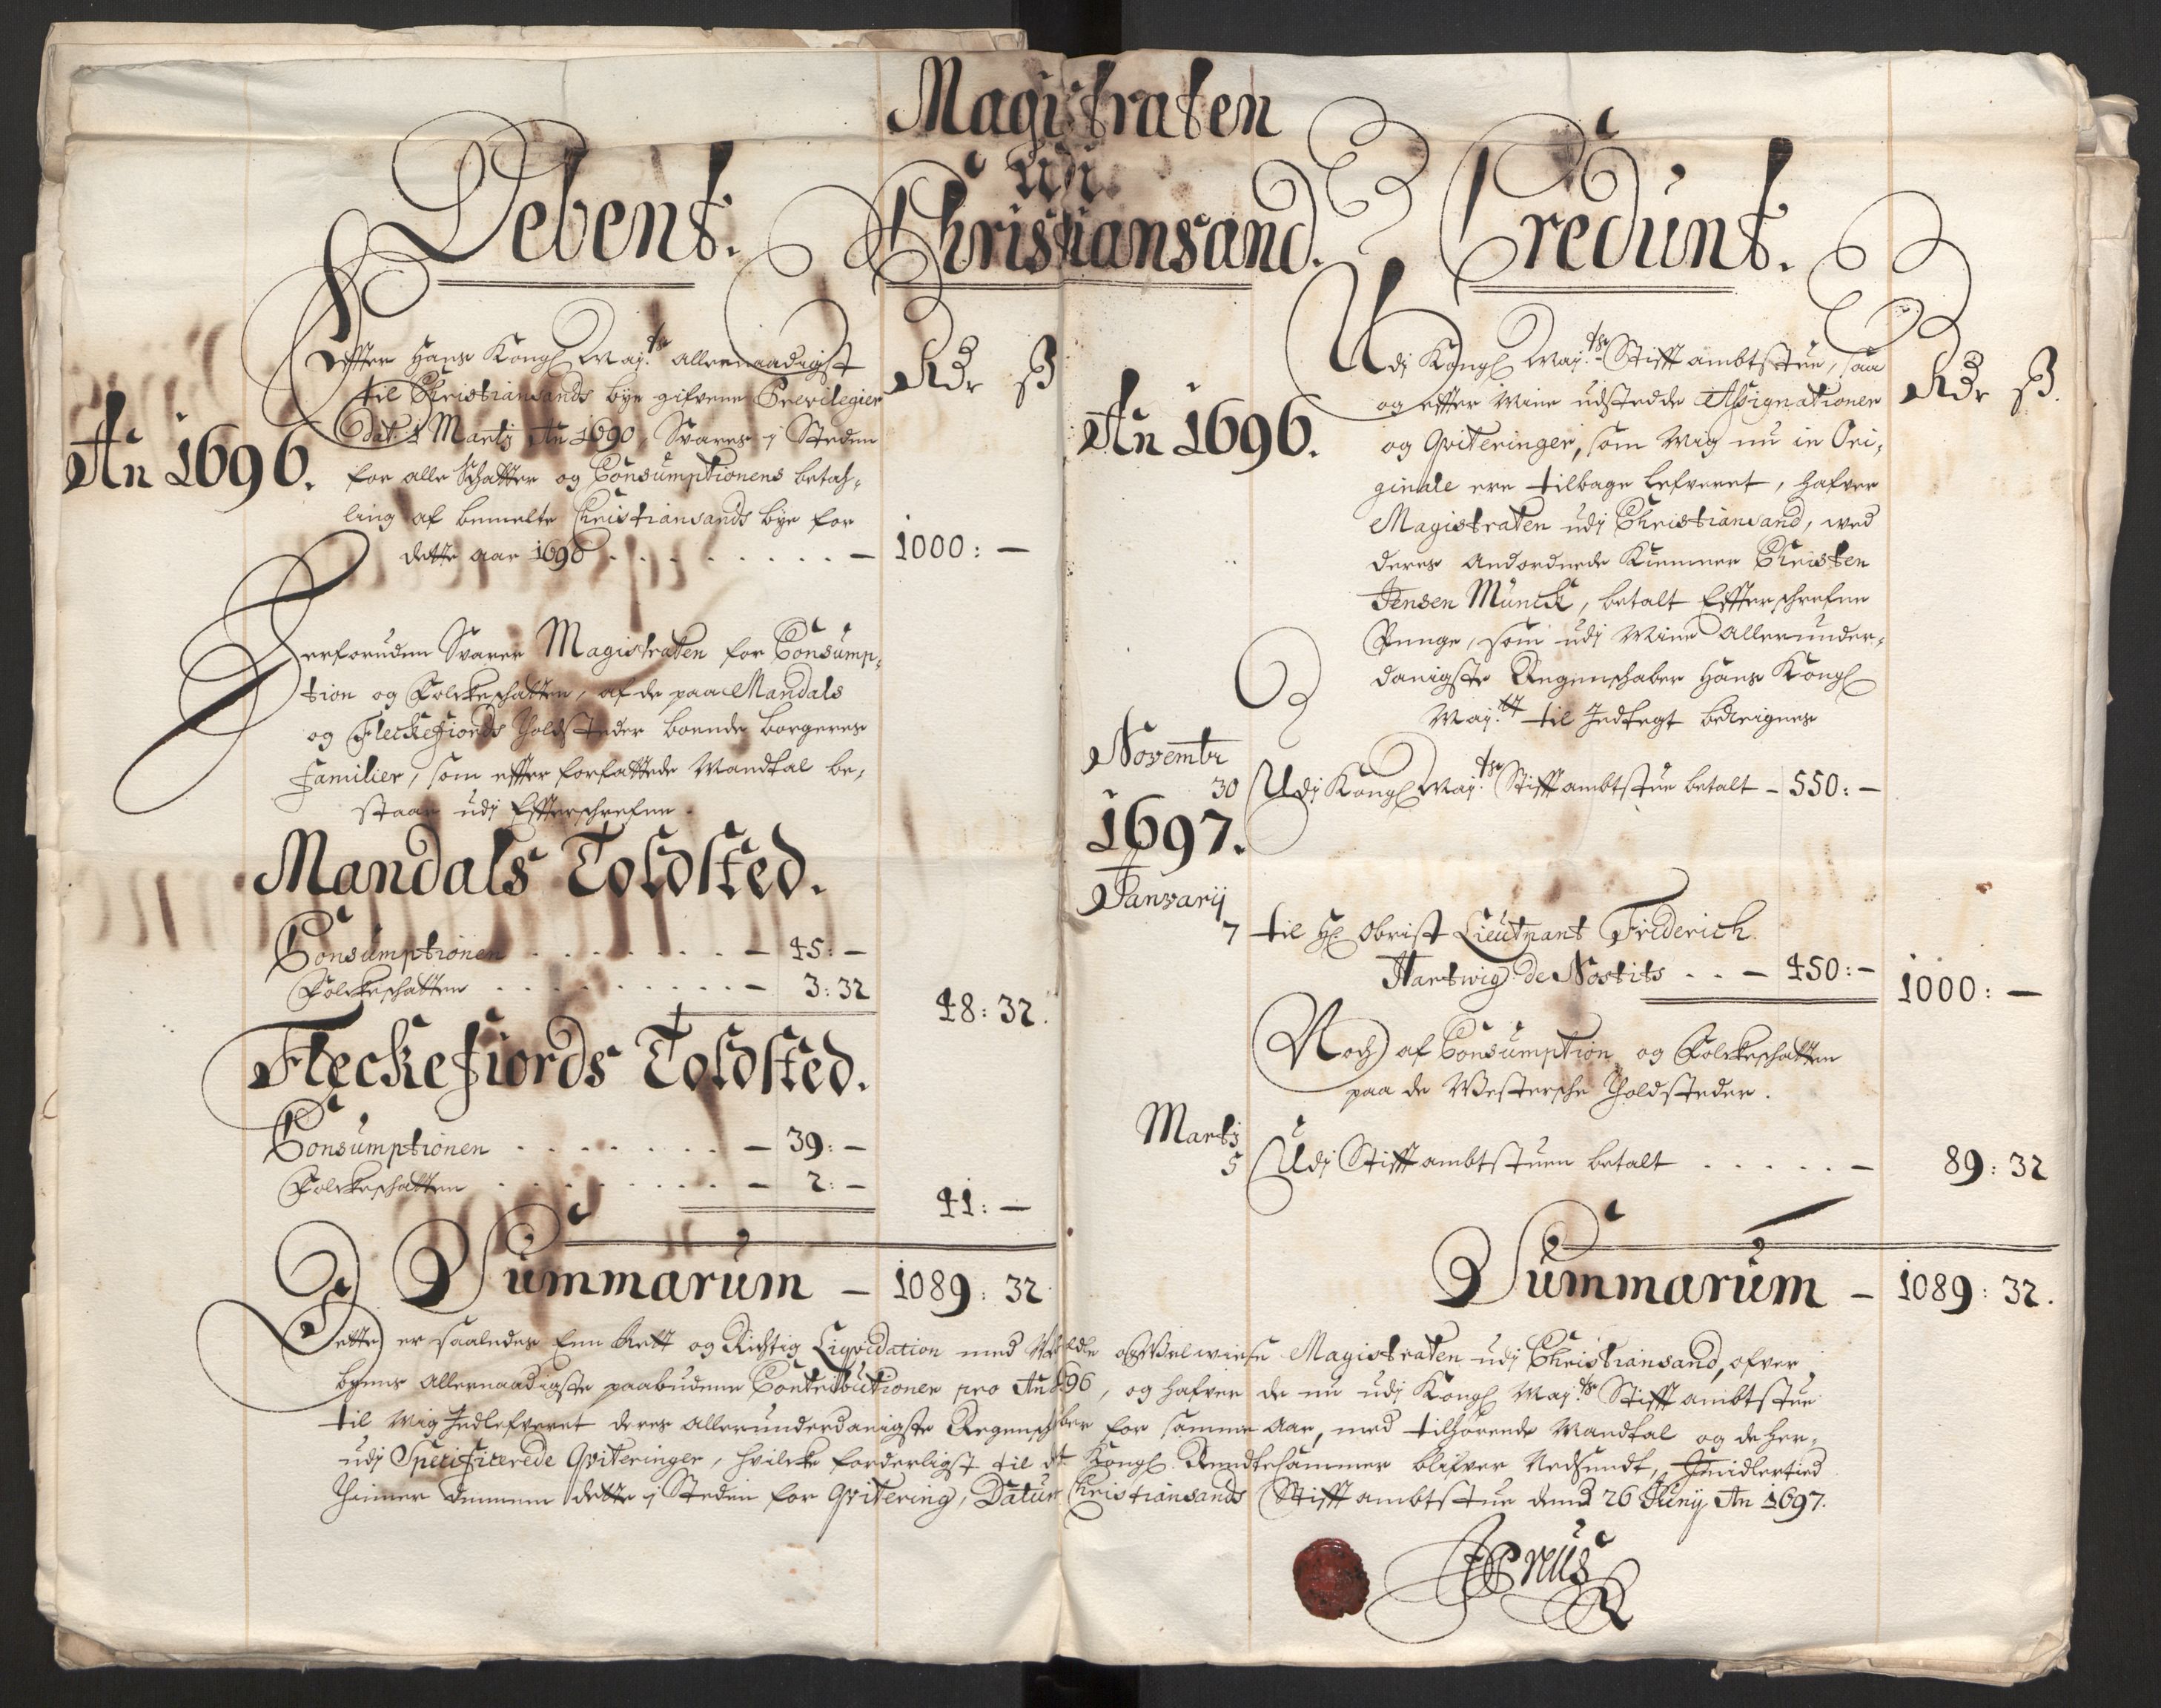 Magistraten
udj
Christiansand.
Debent.
Rdr ß
An 1696.
Effter Hans Kongl Maj.ts allernaadigst
til Christiansands bye gifvene Previlegier
dat. 1 Martij An 1690, Svares j Steden
for alle Schatter og Consumptionens betah-
ling af bemelte Christiansands bye for
dette aar 1696 . . . . . . . . — 1000: —
Derforuden Svarer Magistraten for Consump-
tion og Folckeschatten, af de paa Mandals
og Fleckefiords Toldsteder boende borgeres
Familier, som effter forfattede Mandtal be-
staar udj Effterschrefne.
Mandals Toldsted.
Consumptionen . . . . . . . — 45: —
Folckeschatten . . . . . . . . — 3: 32
48: 32.
Fleckefiords Toldsted.
Consumptionen . . . . . . . — 39: —
Folckeschatten . . . . . . . . — 2: —
41: —
Summarum — 1089: 32
Credunt.
Rdr ß.
An 1696.
Udj Kongl Maj.ts Stifft ambtstue, saa
og effter Mine udstedde Assignationer
og Qviteringer, som Mig nu in Ori-
ginale ere tilbage lefveret, hafver
Magistraten udj Christiansand, ved
deres Andordnede Kiemner Christen
Jensen Munck, betalt Effterschrefne
Penge, som udj Mine Allerunder-
danigste Regenschaber Hans Kongl
Maj.tt til Indtegt beregnes
Novembr
30 Udj Kongl Maj.ts Stifft ambtstue betalt — 550: —
1697.
Januarij
7 til Hr Obrist Lieutnant Friderich
Hartwig de Nostits . . — 450: — 1000: —
Noch af Consumption og Folckeschatten
paa de Westersche Toldsteder.
Martij
5 Udj Stifft ambtstuen betalt . . . . . . — 89: 32
Summarum — 1089: 32.
Dette er saaledes Enn Rett og Richtig Liqvidation med Welædle og Welwiese Magistraten udj Christiansand, ofver
byens Allernaadigste paabudene Contributioner pro An 1696, og hafver de nu udj Kongl Maj.ts Stifft ambtstue
til Mig Indlefveret deres allerunderdanigste Regenschaber for samme Aar, med tilhørende Mandtal og de her-
udj Specificerede Qviteringer, hvilcke forderligst til det Kongl. Rendtekammer blifver Nedsendt, Imidlertied
thiener dennem dette j Steden for Qvitering, Datum Christiansands Stifft ambtstue dend 26 Junij An 1697.